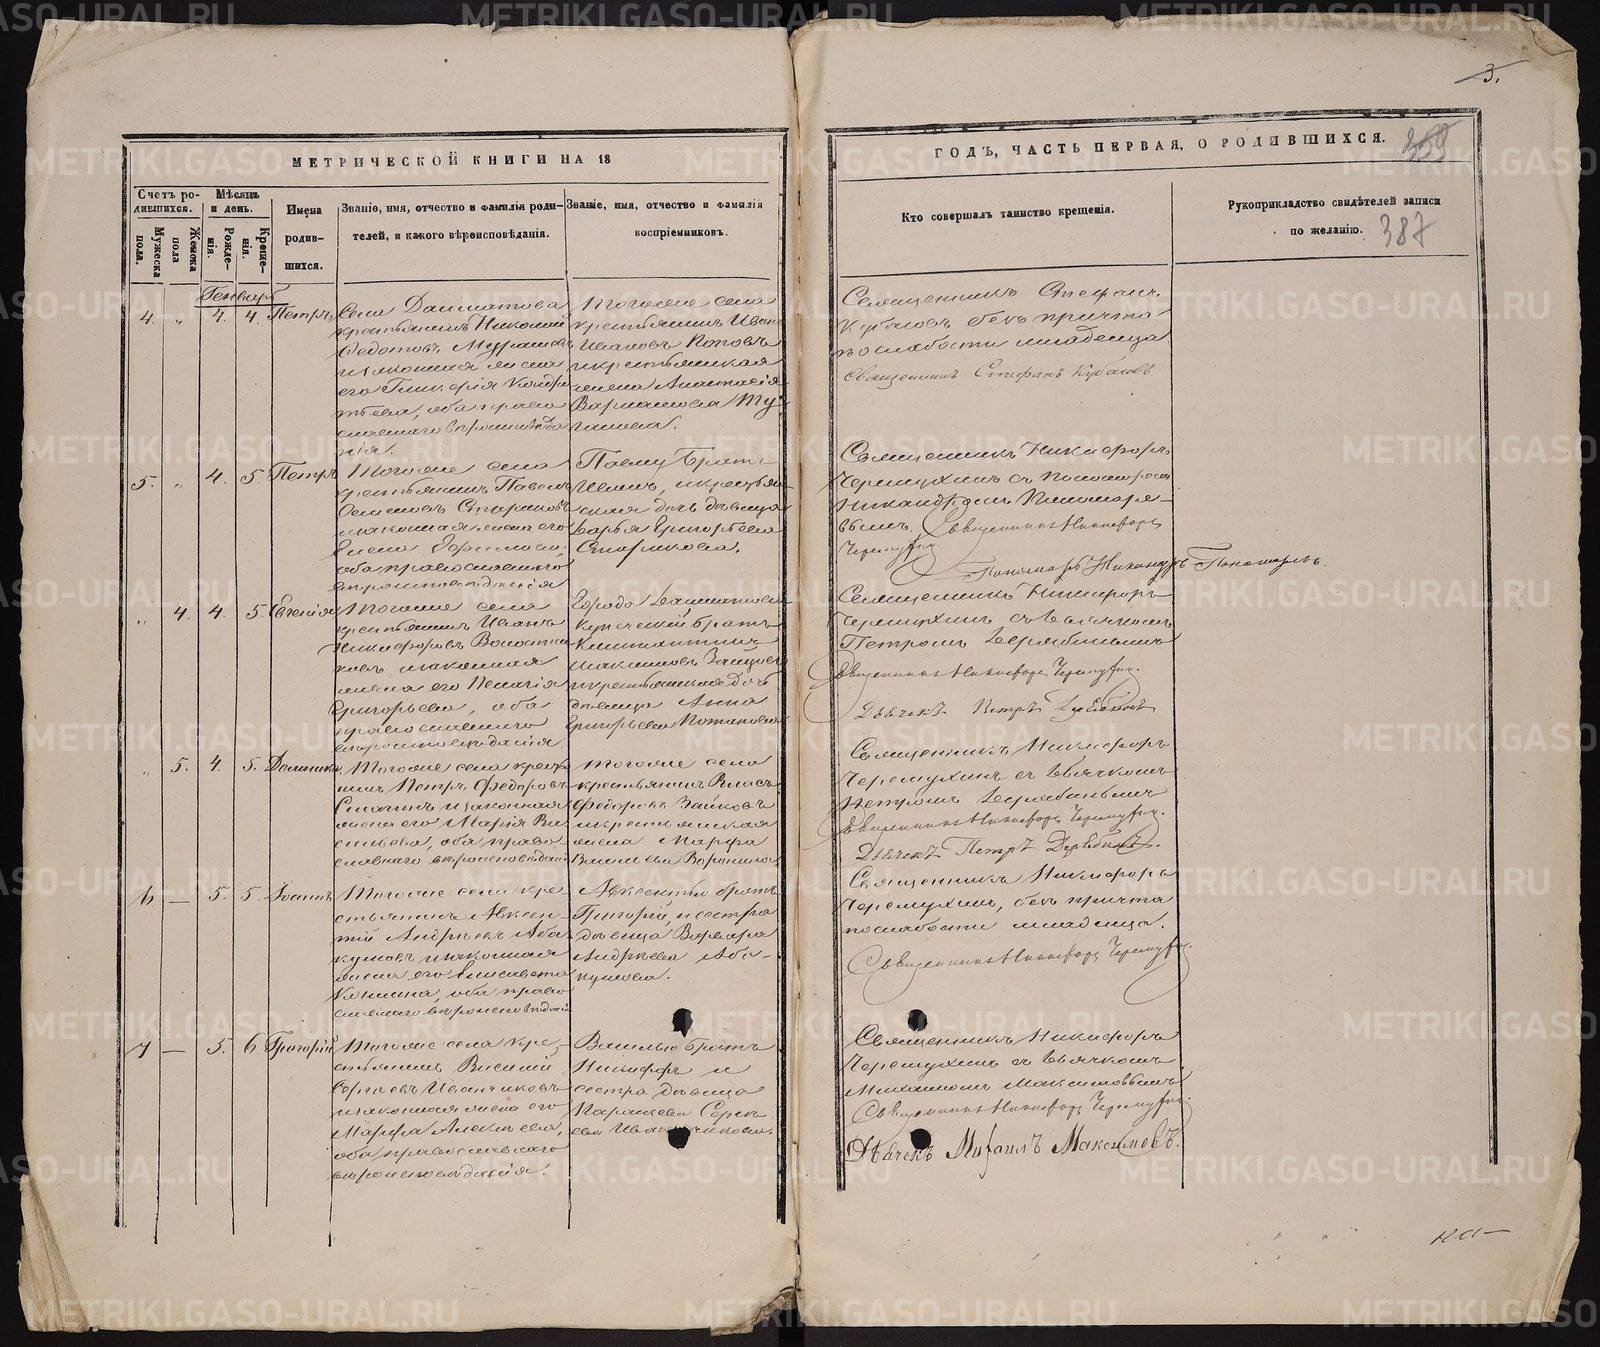 3.
МЕТРИЧЕСКОЙ КНИГИ НА 18
ГОДЪ, ЧАСТЬ ПЕРВАЯ, О РОДИВШИХСЯ.
359
387
Счетъ ро-
дившихся.
Мужеска
пола.
Женска
пола
Мѣсяцъ
и день.
Рожде-
нія.
Креще-
нія.
Имена
родив-
шихся.
Званіе, имя, отчество и фамилія роди-
телей, и какого вѣроисповѣданія.
Званіе, имя, отчество и фамилія
воспріемниковъ.
Кто совершалъ таинство крещенія.
Рукоприкладство свидѣтелей записи
по желанію.
Генварь
4. „ 4. 4. Петръ
Села Далматова
крестьянинъ Николай
Федотовъ
и законная жена
его Гликерія Кондра
тьева, оба право
славнаго вѣроисповѣда
нія.
Тогоже села
крестьянинъ Иванъ
Ивановъ Поповъ
и крестьянская
жена Анастасія
Варламова
Священникъ Стефанъ
безъ причта
по слабости младенца
Священникъ Стефанъ
5. „ 4. 5. Петръ
Тогоже села
крестьянинъ Павелъ
Семеновъ Стариковъ
и законная жена его
Елена
оба православнаго
вѣроисповѣданія
Павлу братъ
Иванъ, и крестьян
ская дочь дѣвица
Дарья Григорьева
Старикова.
Священникъ Никифоръ
Черемухинъ съ пономаремъ
Никандромъ Пономаре-
вымъ. Священникъ Никифоръ
Черемухин
Пономарь Никандръ Пономаревъ.
„ 4. 4. 5. Евгенія
Тогоже села
крестьянинъ Иванъ
Никифоровъ
и законная
жена его Пелагія
Григорьева, оба
православнаго
вѣроисповѣданія
Города Далматова
купеческій братъ
Константинъ
Зайцовъ
и крестьянская дочь
дѣвица Анна
Григорьева Потапова
Священникъ Никифоръ
Черемухинъ съ дьячкомъ
Петромъ Дерябинымъ
Священникъ Никифоръ Черемухин.
Дьячекъ Петръ Дерябинъ
„ 5. 4. 5. Домника
Тогоже села крестья
нинъ Петръ Федоровъ
и законная
жена его Марія Ва
сильева, оба право
славнаго вѣроисповѣдані
Тогоже села
крестьянинъ Власъ
Федоровъ Зайковъ
и крестьянская
жена Марфа
Васильева
Священникъ Никифоръ
Черемухинъ съ дьячкомъ
Петромъ Дерябинымъ
Священникъ Никифоръ Черемухин.
Дьячекъ Петръ Дерябинъ.
6 — 5. 5. Іоаннъ
Тогоже села кре-
стьянинъ Авксен-
тій Андреевъ Аба
кумовъ и законная
жена его Елисавета
оба право
славнаго вѣроисповѣдані
Авксентью братъ
Григорій, и сестра
дѣвица Варвара
Андреева Аба-
кумова.
Священникъ Никифоръ
Черемухинъ, безъ причта
по слабости младенца.
Священникъ Никифоръ Черемухин.
7 — 5. 6. Григорій
Тогоже села кре-
стьянинъ Василій
Сергѣевъ Иванчиковъ
и законная жена его
Марфа Алексѣева,
оба православнаго
вѣроисповѣданія.
Василью братъ
и
сестра дѣвица
Парасковья Сергѣ
ева Иванчикова.
Священникъ Никифоръ
Черемухинъ съ дьячкомъ
Михаиломъ Максимовымъ
Священникъ Никифоръ Черемухин.
Дьячекъ Михаилъ Максимовъ.
METRIKI.GASO-URAL.RU